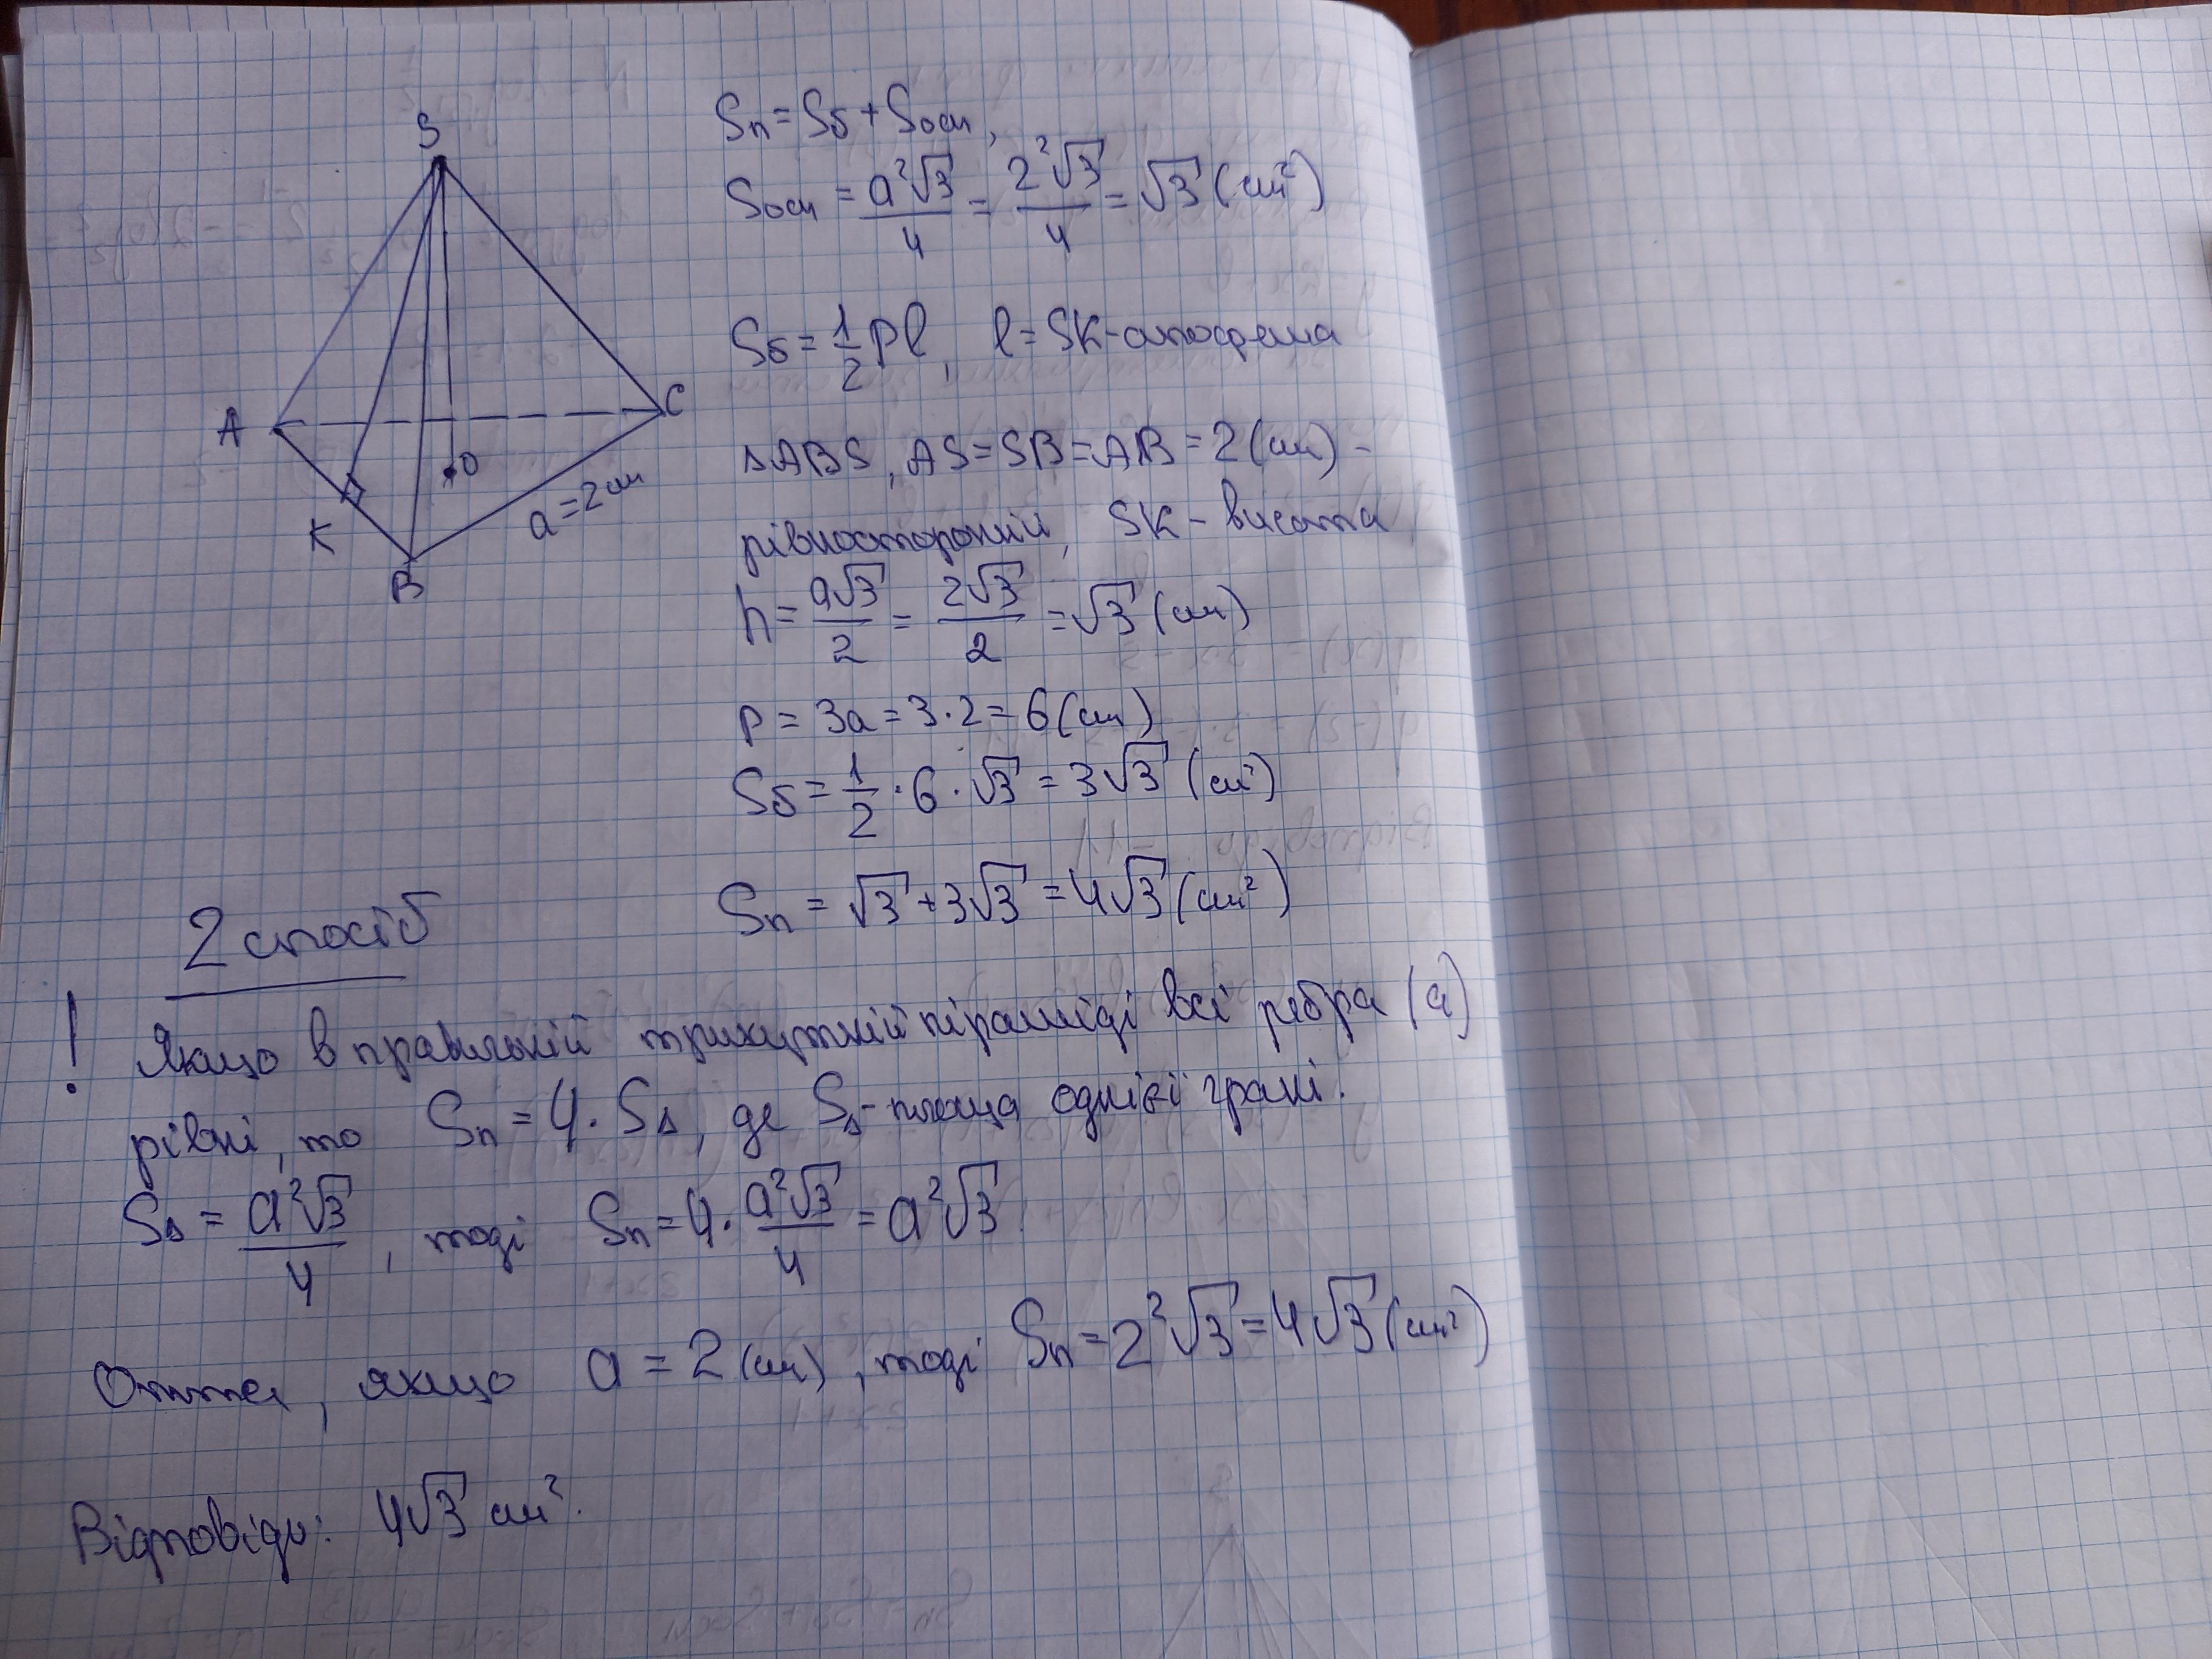 S
A
C
O
K
B
a=2см
Sп=Sб+Sосн,
Sосн = a²√3/4 = 2²√3/4 = √3 (см²)
Sб = 1/2 Pl, l=SK-апофема
△ABS, AS=SB=AB=2(см) -
рівносторонній, SK- висота
h = a√3/2 = 2√3/2 = √3 (см)
P = 3a = 3·2 = 6(см)
Sб = 1/2 · 6 · √3 = 3√3 (см²)
Sп = √3+3√3 = 4√3 (см²)
2 спосіб
! Якщо в правильній трикутній піраміді всі ребра (a)
рівні, то Sп = 4· S△, де S△-площа однієї грані.
S△ = a²√3/4, тоді Sп = 4· a²√3/4 = a²√3
Отже, якщо a = 2 (см), тоді Sп = 2²√3 = 4√3 (см²)
Відповідь: 4√3 см².